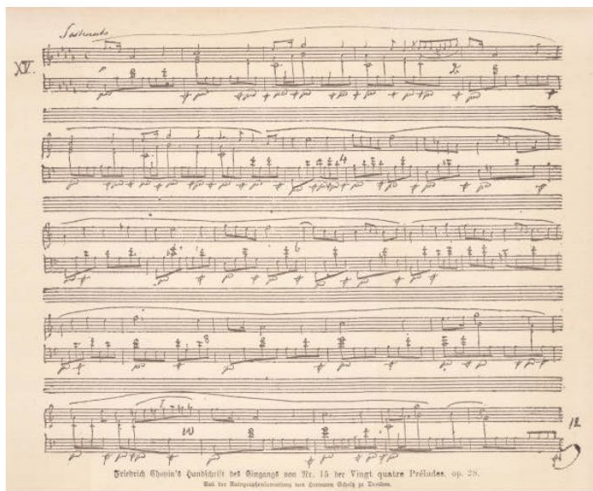 Sostenuto
XV.
Friedrich Chopin's Handschrift des Eingangs von Nr. 15 der Vingt quatre Préludes. op. 28.
Aus der Autographensammlung von Hermann Scholtz zu Dresden.